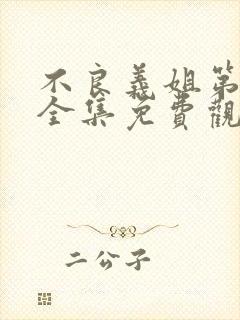 不良義姐第
全集免費觀
二公子